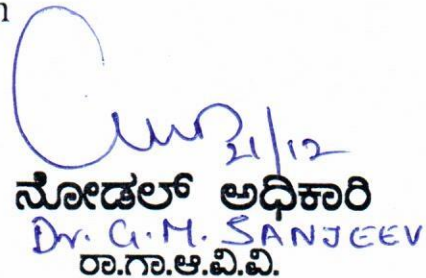 21/12
ನೋಡಲ್ ಅಧಿಕಾರಿ
Dr. G.M. SANJEEV
ರಾ.ಗಾ.ಆ.ವಿ.ವಿ.